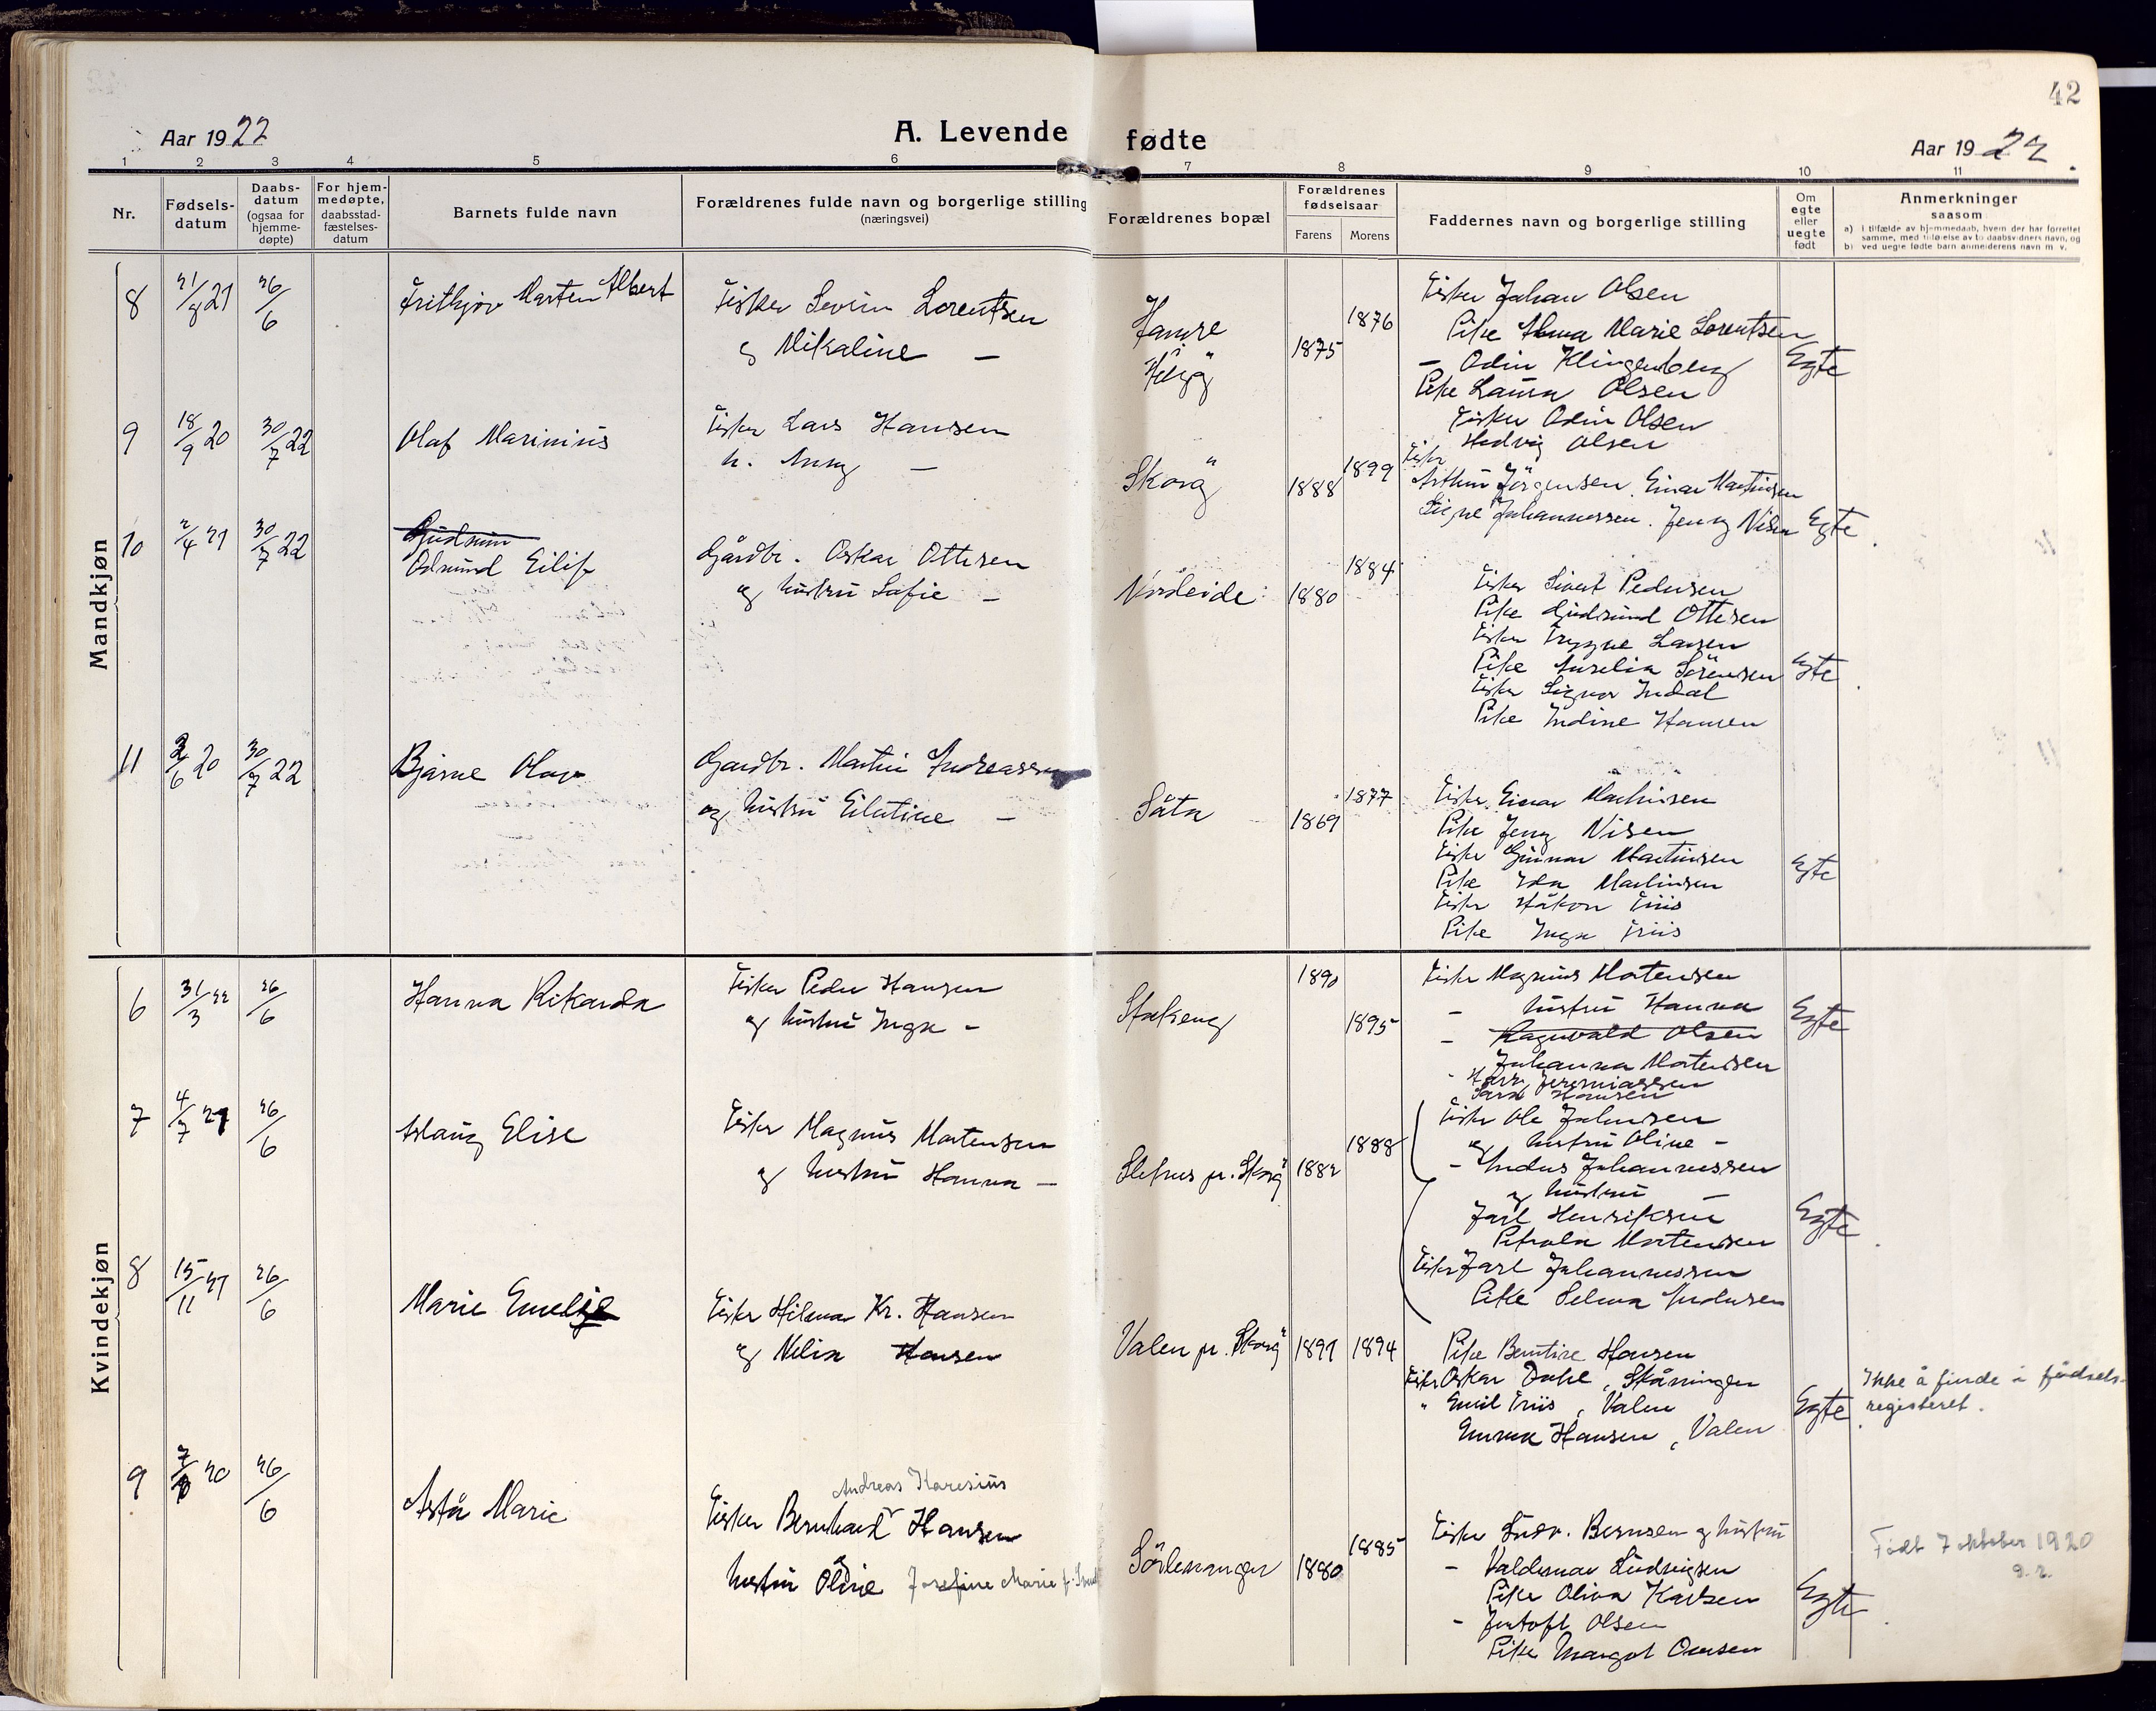 42
Aar 1922
A. Levende fødte
Aar 1922
1 2 3 4 5 6 7 8 9 10 11
Nr.
Fødsels-
datum
Daabs-
datum
(ogsaa for
hjemme-
døpte)
For hjem-
medøpte,
daabsstad-
fæstelses-
datum
Barnets fulde navn
Forældrenes fulde navn og borgerlige stilling
(næringsvei)
Forældrenes bopæl
Forældrenes
fødselsaar
Farens Morens
Faddernes navn og borgerlige stilling
Om
egte
eller
uegte
født
Anmerkninger
saasom
a) i tilfælde av hjemmedaab, hvem der har forrettet
samme, med tilføielse av to daabsvidners navn, og
b) ved uegte fødte barn anmelderens navn m. v.
Mandkjøn
8 21/8 21 26/6 Frithjov Marten Albert
Fisker Severin Lorentsen
og Mikaline —
Hamre
Helgø
1875 1876
Fisker Johan Olsen
Pike Alma Marie Lorentsen
— Odin Klingenberg
Pike Laura Olsen
Fisker Odin Olsen
Hedvig Olsen
Egte
9 18/9 20 30/7 22 Olaf Marinius
Fisker Lars Hansen
h. Anny —
Skorø
1888 1899
Fisker
Arthur Jörgensen. Einar Martinsen
Signe Johannessen. Jenny Nilsen
Egte
10 2/4 21 30/7 22 Gudrun
Odmund Eilif
Gårdbr. Oskar Ottesen
og hustru Sofie —
Nordeide
1880 1884
Fisker Sivert Pedersen
Pike Gudrund Ottesen
Fisker Trygve Larsen
Pike Aurelia Sörensen
Fisker Signor Indal
Pike Indine Hansen
Egte
11 2/6 20 30/7 22 Bjarne Olav
Gardbr. Martin Andreassen
og hustru Eilertine —
Såta
1869 1877
Fisker Einar Martinsen
Pike Jenny Nilsen
Fisker Gunnar Martinsen
Pike Ida Martinsen
Fisker Håkon Friis
Pike Inga Friis
Egte
Kvindekjøn
6 31/3 22 26/6 Hanna Rikarda
Fisker Peder Hansen
og hustru Inga —
Stakseng
1890 1895
Fisker Magnus Mortensen
— hustru Hanna
— Ragnvald Olsen
Johanna Mortensen
Jeremiassen
Sara Hansen
Egte
7 4/7 21 26/6 Aslaug Elise
Fisker Magnus Mortensen
og hustru Hanna —
pr. Skorø
1882 1888
Fisker Ole Johnsen
og hustru Oline —
— Indus Johannessen
og hustru —
Jarl Henriksen
Petrola Mortensen
Fisker Jarl Johannessen
Pike Selma Andersen
Egte
8 15/11 21 26/6 Marie Emelie
Fisker Hilmar Kr. Hansen
og Nelia Hansen
Valen pr. Skorø
1891 1894
Pike Berntine Hansen
Fisker Oskar Dahl, Skåningen
" Emil Friis, Valen
Emma Hansen, Valen
Egte
Ikke å finde i fødsels-
registeret.
9 7/10 20 26/6 Asta Marie
Andreas Karesius
Fisker Bernhard Hansen
hustru Oline Josefine Marie f.
Sörlenangen
1880 1885
Fisker Ludv. Berntsen og hustru
— Valdemar Ludvigsen
Pike Oliva Karlsen
— Jentoft Olsen
Pike Margot Olsen
Egte
Født 7 oktober 1920